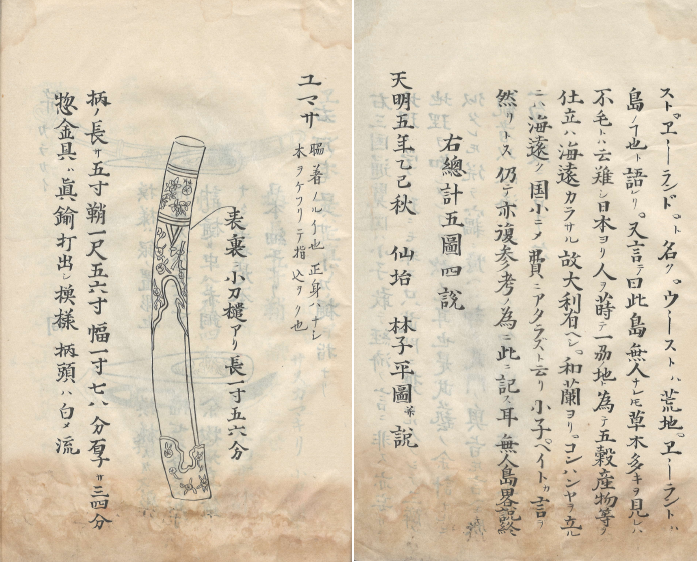 ストヱーランド。ト名ク。ウーストハ荒地。ヱーラントハ
島ノヿ也ト語レリ。又言テ曰此島無人ナレ𪜈草木多キヲ見レハ
不毛トハ云難シ日本ヨリ人ヲ蒔テ一昜地ト為テ五穀産物等ヲ
仕立ハ海遠カラサル故大利有ベシ。和蘭ヨリ。コンハンヤヲ立ル
ニハ海遠ク国小ニメ費ニアタラズト云リ小子ペイトカ言ヲ
然リトス仍テ亦復参考ノ為ニ此ニ記ス耳無人島畧説終
右總計五圖四説
天明五年乙巳秋 仙䑓 林子平圖並説
ユマサ
着ノルヿ也 正身ハナシ
木ヲケフリテ指込ヲクヿ也
表裏ニ小刀樋アリ長一寸五六分
柄ノ長サ五寸鞘一尺五六寸幅一寸七八分厚サ三四分
惣金具ハ眞鍮打出シ模様柄頭ハ白メ流